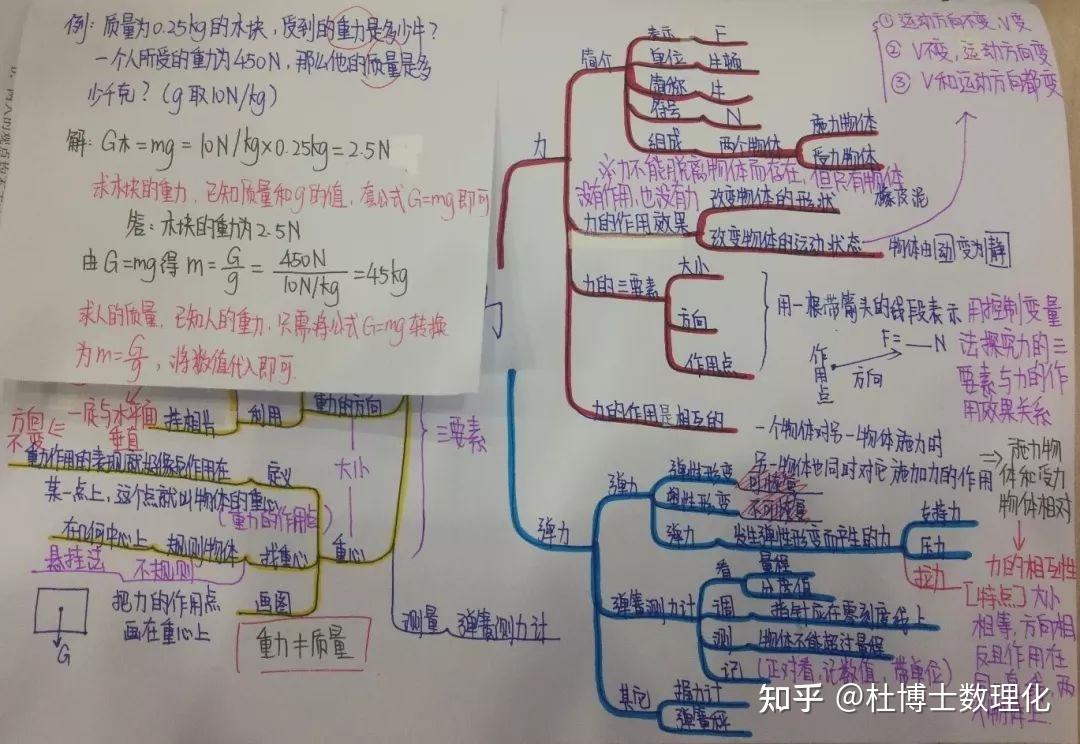 例：质量为0.25kg的木块，受到的重力是多少牛？
一个人所受的重力为450N，那么他的质量是多
少千克？（g取10N/kg）
解：G木=mg=10N/kg×0.25kg=2.5N
求木块的重力，已知质量和g的值，套公式G=mg即可
答：木块的重力为2.5N
由G=mg得 m=G/g=450N/10N/kg=45kg
求人的质量，已知人的重力，只需将公式G=mg转换
为m=G/g，将数值代入即可.
力
简介
表示 F
单位 牛顿
简称 牛
符号 N
组成 两个物体
施力物体
受力物体
※力不能脱离物体而存在，但只有物体
没有作用，也没有力
力的作用效果
改变物体的形状
橡皮泥
改变物体的运动状态
物体由动变为静
① 运动方向不变，V变
② V不变，运动方向变
③ V和运动方向都变
力的三要素
大小
方向
作用点
用一根带箭头的线段表示
作用点
方向
F=—N
用控制变量
法探究力的三
要素与力的作
用效果关系
力的作用是相互的
一个物体对另一物体施力时
另一物体也同时对它施加力的作用
⇒施力物
体和受力
物体相对
力的相互性
[特点]大小
相等，方向相
反且作用在
弹力
弹力
弹性形变 可恢复
塑性形变 不可恢复
弹力 发生弹性形变而产生的力
支持力
压力
拉力
弹簧测力计
看
量程
分度值
调 指针应在零刻度线上
测 物体不能超过量程
记 （正对看，记数值，带单位）
其它
握力计
弹簧秤
三要素
重力的方向
利用
挂相片
一底与水平面
垂直
方向
不变
大小
重心
定义
重力作用的表现就好像它作用在
某一点上，这个点就叫物体的重心
（重力的作用点）
找重心
规则物体
在几何中心上
不规则
悬挂法
画图
把力的作用点
画在重心上
G
重力≠质量
测量 弹簧测力计
知乎 @杜博士数理化